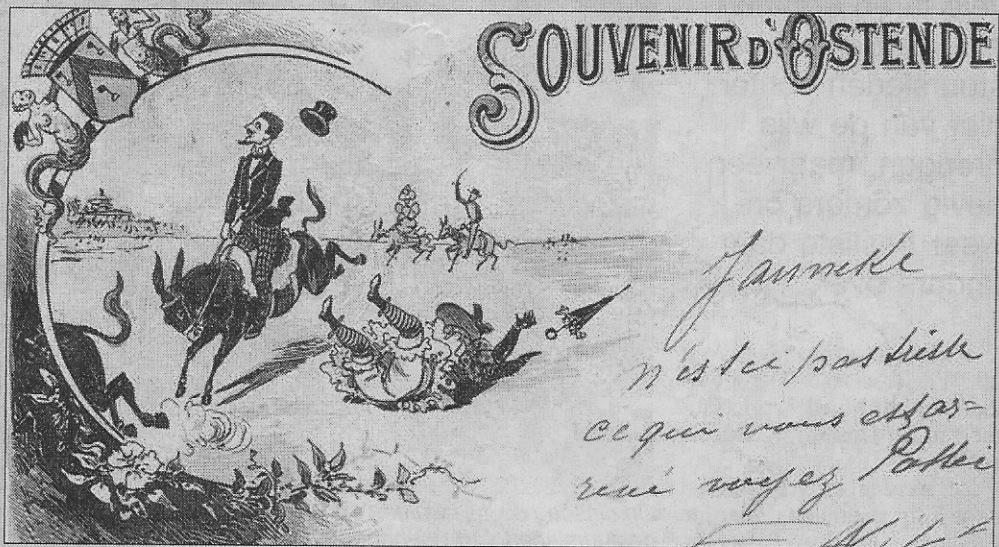 SOUVENIR D'OSTENDE
Janneke
n'est ce pas triste
ce qui vous est ar=
rivé voyez